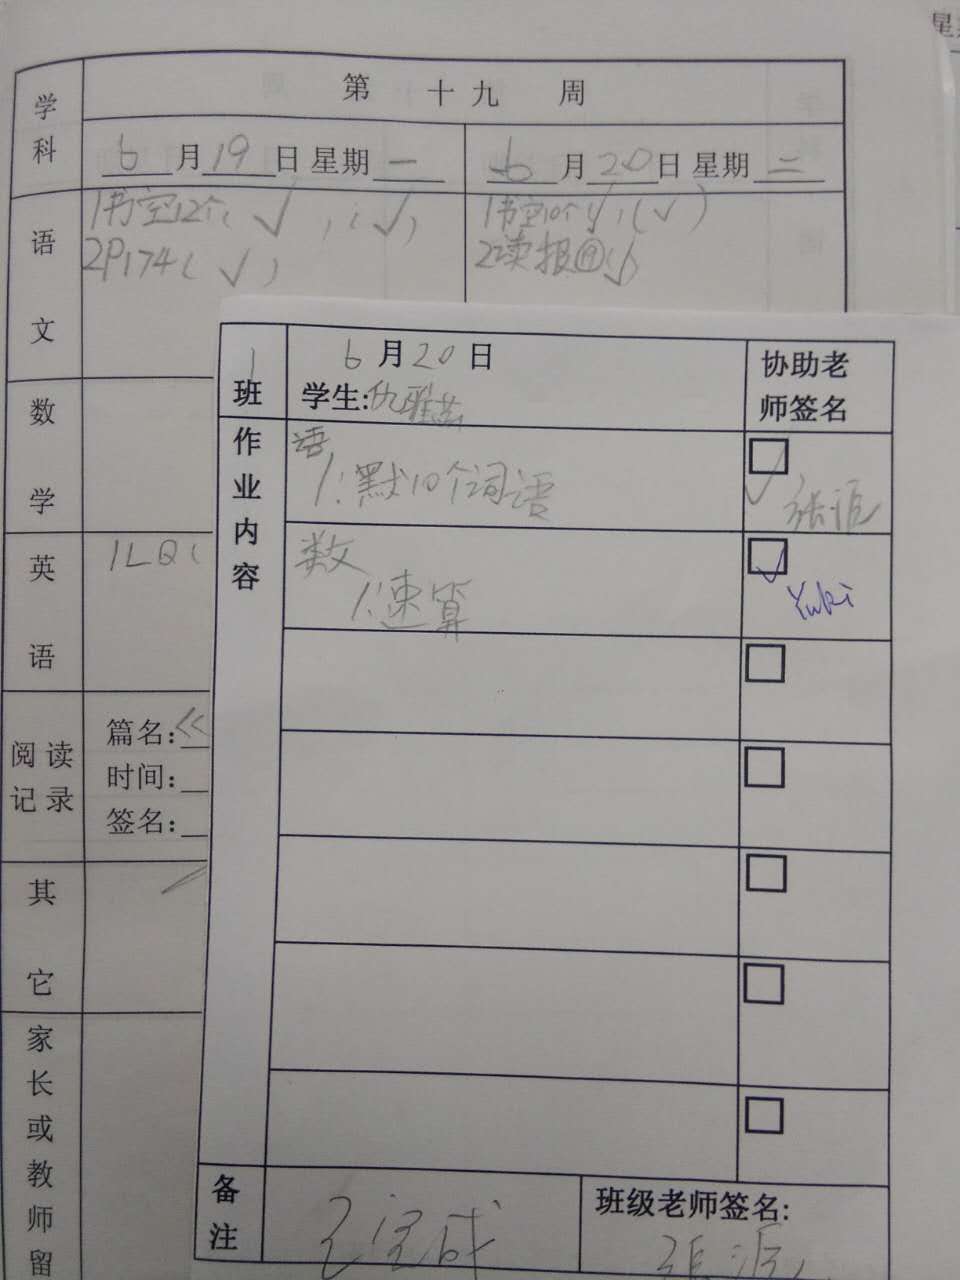 第 十九 周
学科
6月19日星期一
6月20日星期二
语文
1书空12个(√),(√)
2P174(√)
1书空10个√,(√)
2读报⑲(√)
数学
英语
1LQ(
阅读记录
篇名:《
时间:
签名:
其它
家长或教师留
1班
6月20日
学生:仇雅
协助老师签名
作业内容
语
1:默10个词语
√张
数
1:速算
√
Yuki
备注
已完成
班级老师签名:
张